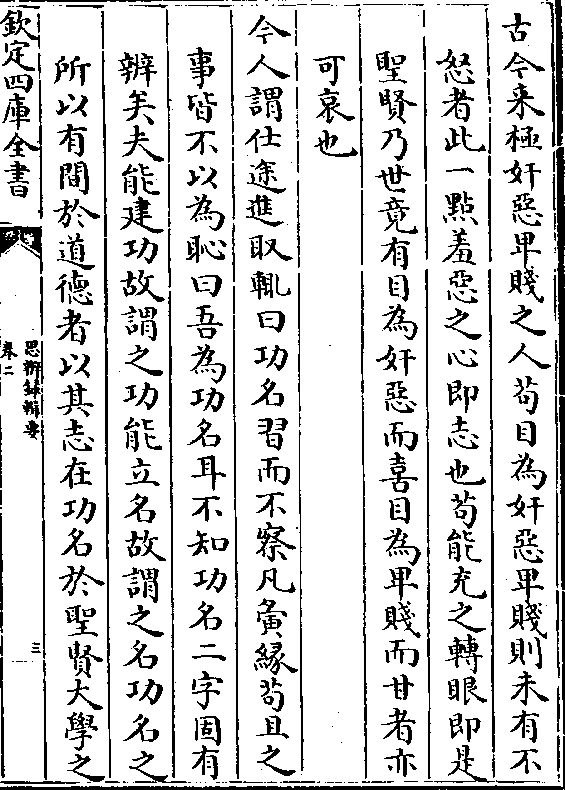 古今来極奸惡卑賤之人苟目為奸惡卑賤則未有不
怒者此一點羞惡之心即志也苟能充之轉眼即是
聖賢乃世竟有目為奸惡而喜目為卑賤而甘者亦
可哀也
今人謂仕途進取輒曰功名習而不察凡夤緣苟且之
事皆不以為恥曰吾為功名耳不知功名二字固有
辨矣夫能建功故謂之功能立名故謂之名功名之
所以有間於道德者以其志在功名於聖賢大學之
欽定四庫全書
思辨録輯要
卷二
三